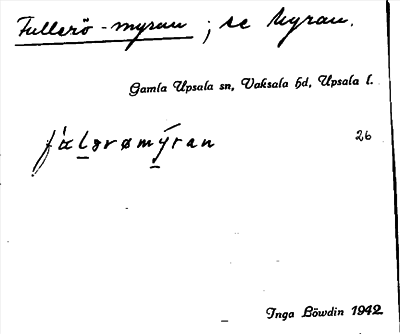 Fullerö-myran ; se Myran.
Gamla Upsala sn, Vaksala hd, Upsala l.
26
Inga Löwdin 1942